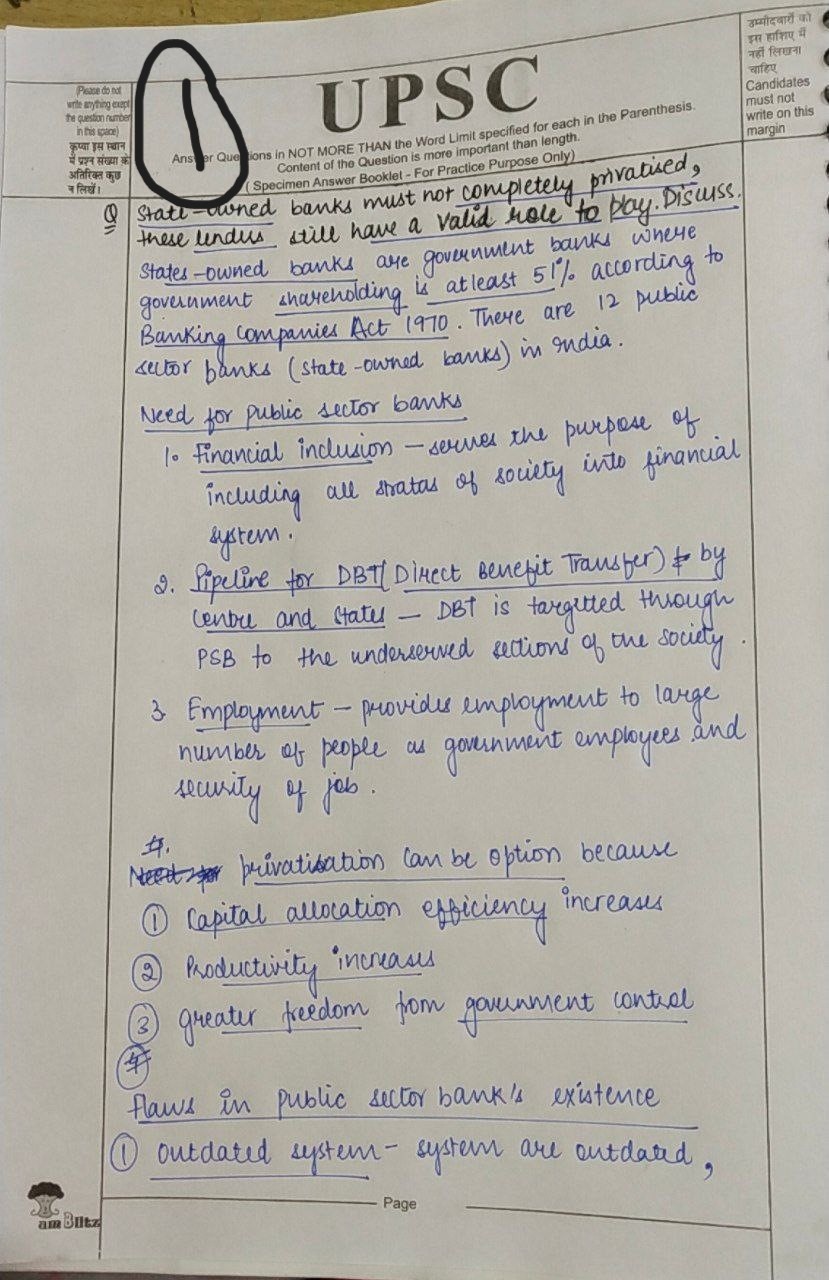 (Please do not
write anything exept
the question number
in this space)
कृप्या इस स्थान
में प्रश्न संख्या के
अतिरिक्त कुछ
न लिखें।
1
UPSC
Answer Questions in NOT MORE THAN the Word Limit specified for each in the Parenthesis.
Content of the Question is more important than length.
( Specimen Answer Booklet - For Practice Purpose Only)
उम्मीदवारों को
इस हाशिए में
नहीं लिखना
चाहिए
Candidates
must not
write on this
margin
Q State-owned banks must not completely privatised,
these lenders still have a valid role to play. Discuss.
States-owned banks are government banks where
government shareholding is atleast 51% according to
Banking Companies Act 1970. There are 12 public
sector banks (state-owned banks) in India.
Need for public sector banks
1. Financial inclusion – serves the purpose of
including all stratas of society into financial
system.
2. Pipeline for DBT (Direct Benefit Transfer) by
Centre and States – DBT is targetted through
PSB to the underserved sections of the society.
3. Employment – provides employment to large
number of people as government employees and
security of job.
privatisation can be option because
① Capital allocation efficiency increases
② Productivity increases
③ greater freedom from government control
Flaws in public sector bank's existence
① outdated system – system are outdated,
Page
am Blitz